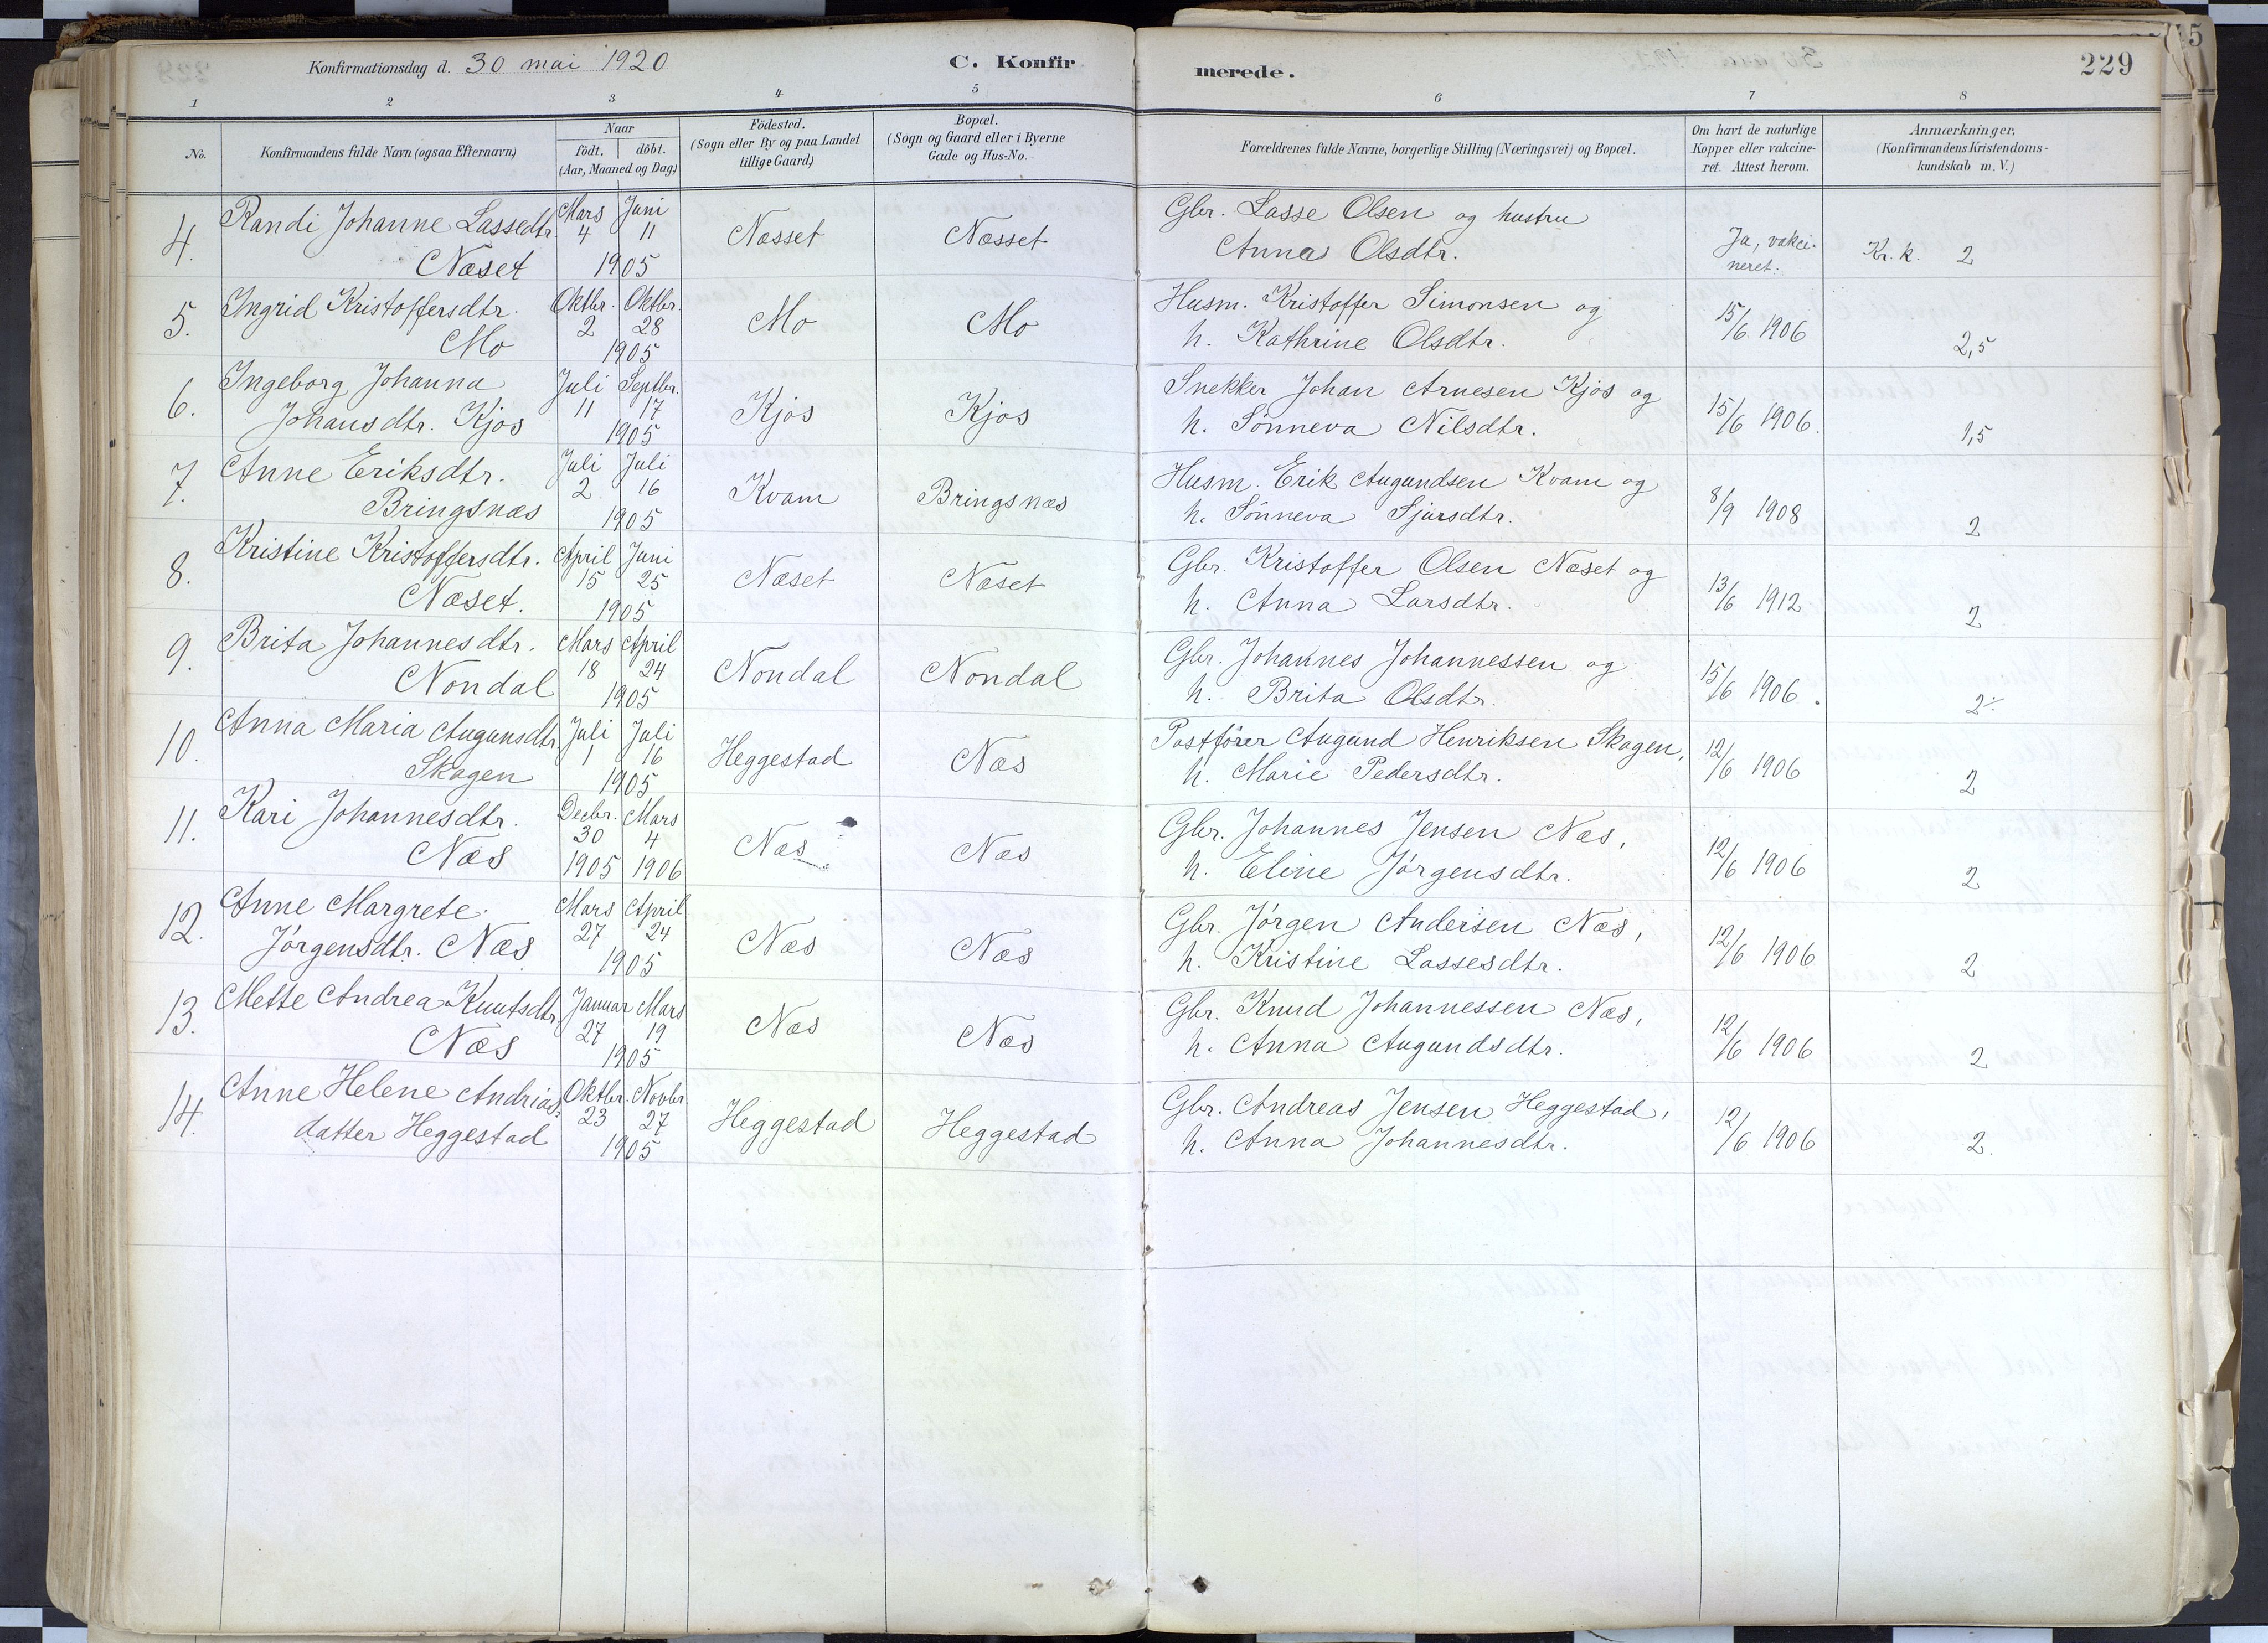 Konfirmationsdag d. 30 mai 1920
C. Konfirmerede.
229
1 2 3 4 5 6 7 8
No.
Konfirmandens fulde Navn (ogsaa Efternavn)
Naar
födt. döbt.
(Aar, Maaned og Dag)
Födested.
(Sogn eller By og paa Landet
tillige Gaard)
Bopæl.
(Sogn og Gaard eller i Byerne
Gade og Hus-No.
Forældrenes fulde Navne, borgerlige Stilling (Næringsvei) og Bopæl.
Om havt de naturlige
Kopper eller vakcine-
ret. Attest herom.
Anmærkninger,
(Konfirmandens Kristendoms-
kundskab m. V.)
4. Randi Johanne Lassedtr. Mars 4 Juni 11 Næsset Næsset Gbr. Lasse Olsen og hustru
Næset 1905 Anna Olsdtr. Ja, vakci-
neret. Kr. k. 2
5. Ingrid Kristoffersdtr. Oktbr. 2 Oktbr. 28 Mo Mo Husm. Kristoffer Simonsen og
Mo 1905 h. Kathrine Olsdtr. 15/6 1906 2,5
6. Ingeborg Johanna Juli 11 Septbr. 17 Kjos Kjos Snekker Johan Arnesen Kjos og
Johansdtr. Kjos 1905 h. Sönneva Nilsdtr. 15/6 1906. 1,5
7. Anne Eriksdtr. Juli 2 Juli 16 Kvam Bringsnæs Husm. Erik Augundsen Kvam og
Bringsnæs 1905 h. Sönneva Sjursdtr. 8/9 1908 2
8. Kristine Kristoffersdtr. April 15 Juni 25 Næset Næset Gbr. Kristoffer Olsen Næset og
Næset. 1905 h. Anna Larsdtr. 13/6 1912 2
9. Brita Johannesdtr. Mars 18 April 24 Nondal Nondal Gbr. Johannes Johannessen og
Nondal 1905 h. Brita Olsdtr. 15/6 1906. 2÷
10. Anna Maria Augunsdtr. Juli 1 Juli 16 Heggestad Næs Postförer Augund Henriksen Skagen,
Skagen 1905 h. Marie Pedersdtr. 12/6 1906 2
11. Kari Johannesdtr. Decbr. 30 Mars 4 Næs Næs Gbr. Johannes Jensen Næs,
Næs 1905 1906 h. Eline Jörgensdtr. 12/6 1906 2
12. Anne Margrete Mars 27 April 24 Næs Næs Gbr. Jörgen Andersen Næs,
Jörgensdtr. Næs 1905 h. Kristine Lassesdtr. 12/6 1906 2
13. Mette Andrea Knutsdtr. Januar 27 Mars 19 Næs Næs Gbr. Knud Johannessen Næs,
Næs 1905 h. Anna Augundsdtr. 12/6 1906 2
14. Anne Helene Andrias- Oktbr. 23 Novbr. 27 Heggestad Heggestad Gbr. Andreas Jensen Heggestad,
datter Heggestad 1905 h. Anna Johannesdtr. 12/6 1906 2.